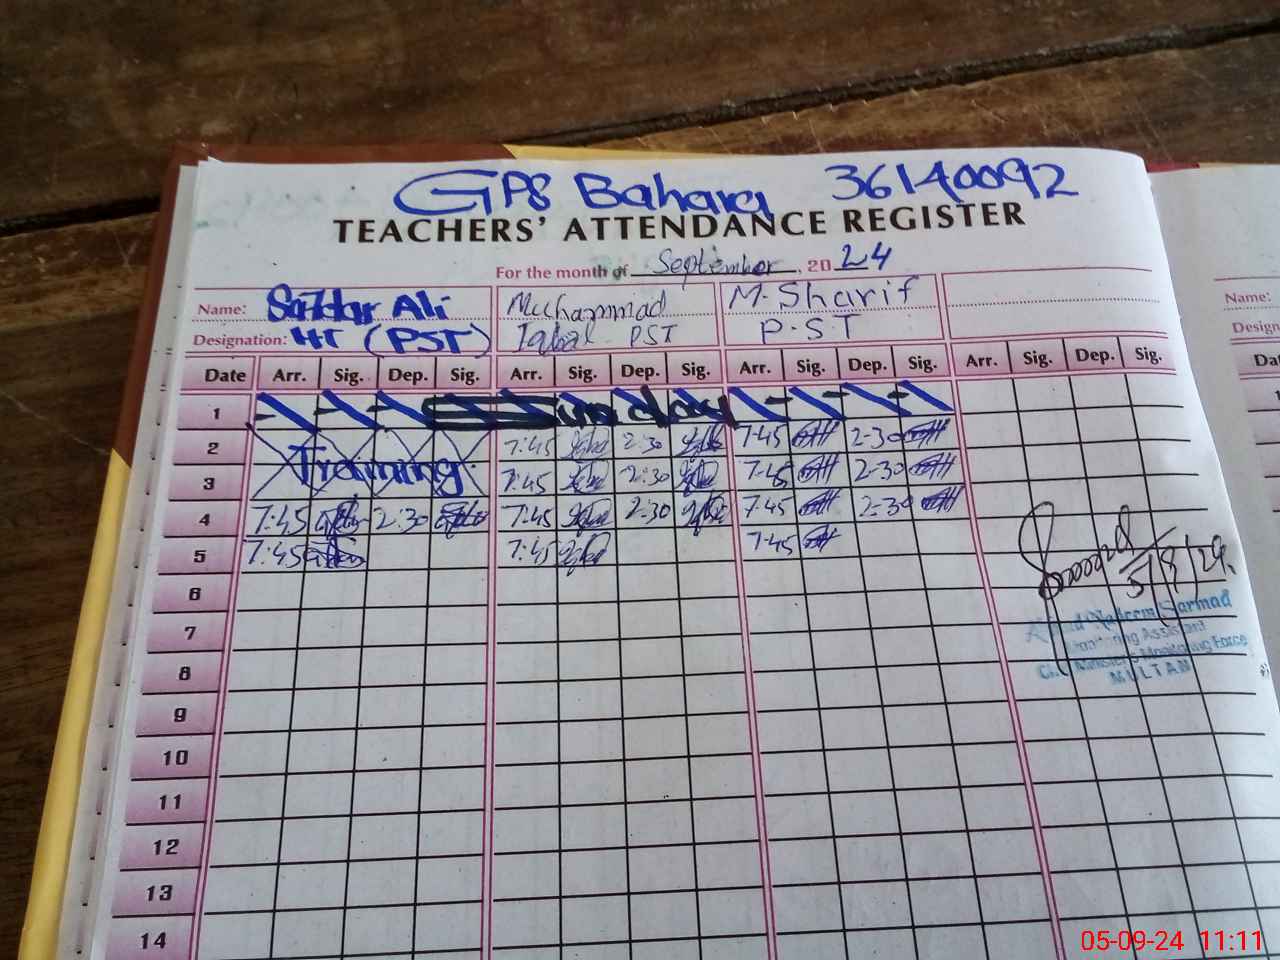 GPS Bahara 36140092
TEACHERS' ATTENDANCE REGISTER
For the month of September, 2024
Name: Safdar Ali Muhammad M. Sharif Name:
Designation: HT (PST) Iqbal PST P.S.T
Date Arr. Sig. Dep. Sig. Arr. Sig. Dep. Sig. Arr. Sig. Dep. Sig. Arr. Sig. Dep. Sig.
1 Sunday
2 Training 7:45 2:30 7-45 2-30
3 7:45 2:30 7-45 2-30
4 7:45 2:30 7:45 2:30 7-45 2-30
5 7:45 7:45 7-45
5/8/24
6
Nadeem Sarmad
7 Monitoring Assistant
Minister's Monitoring Force
8 MULTAN
9
10
11
12
13
14
05-09-24 11:11